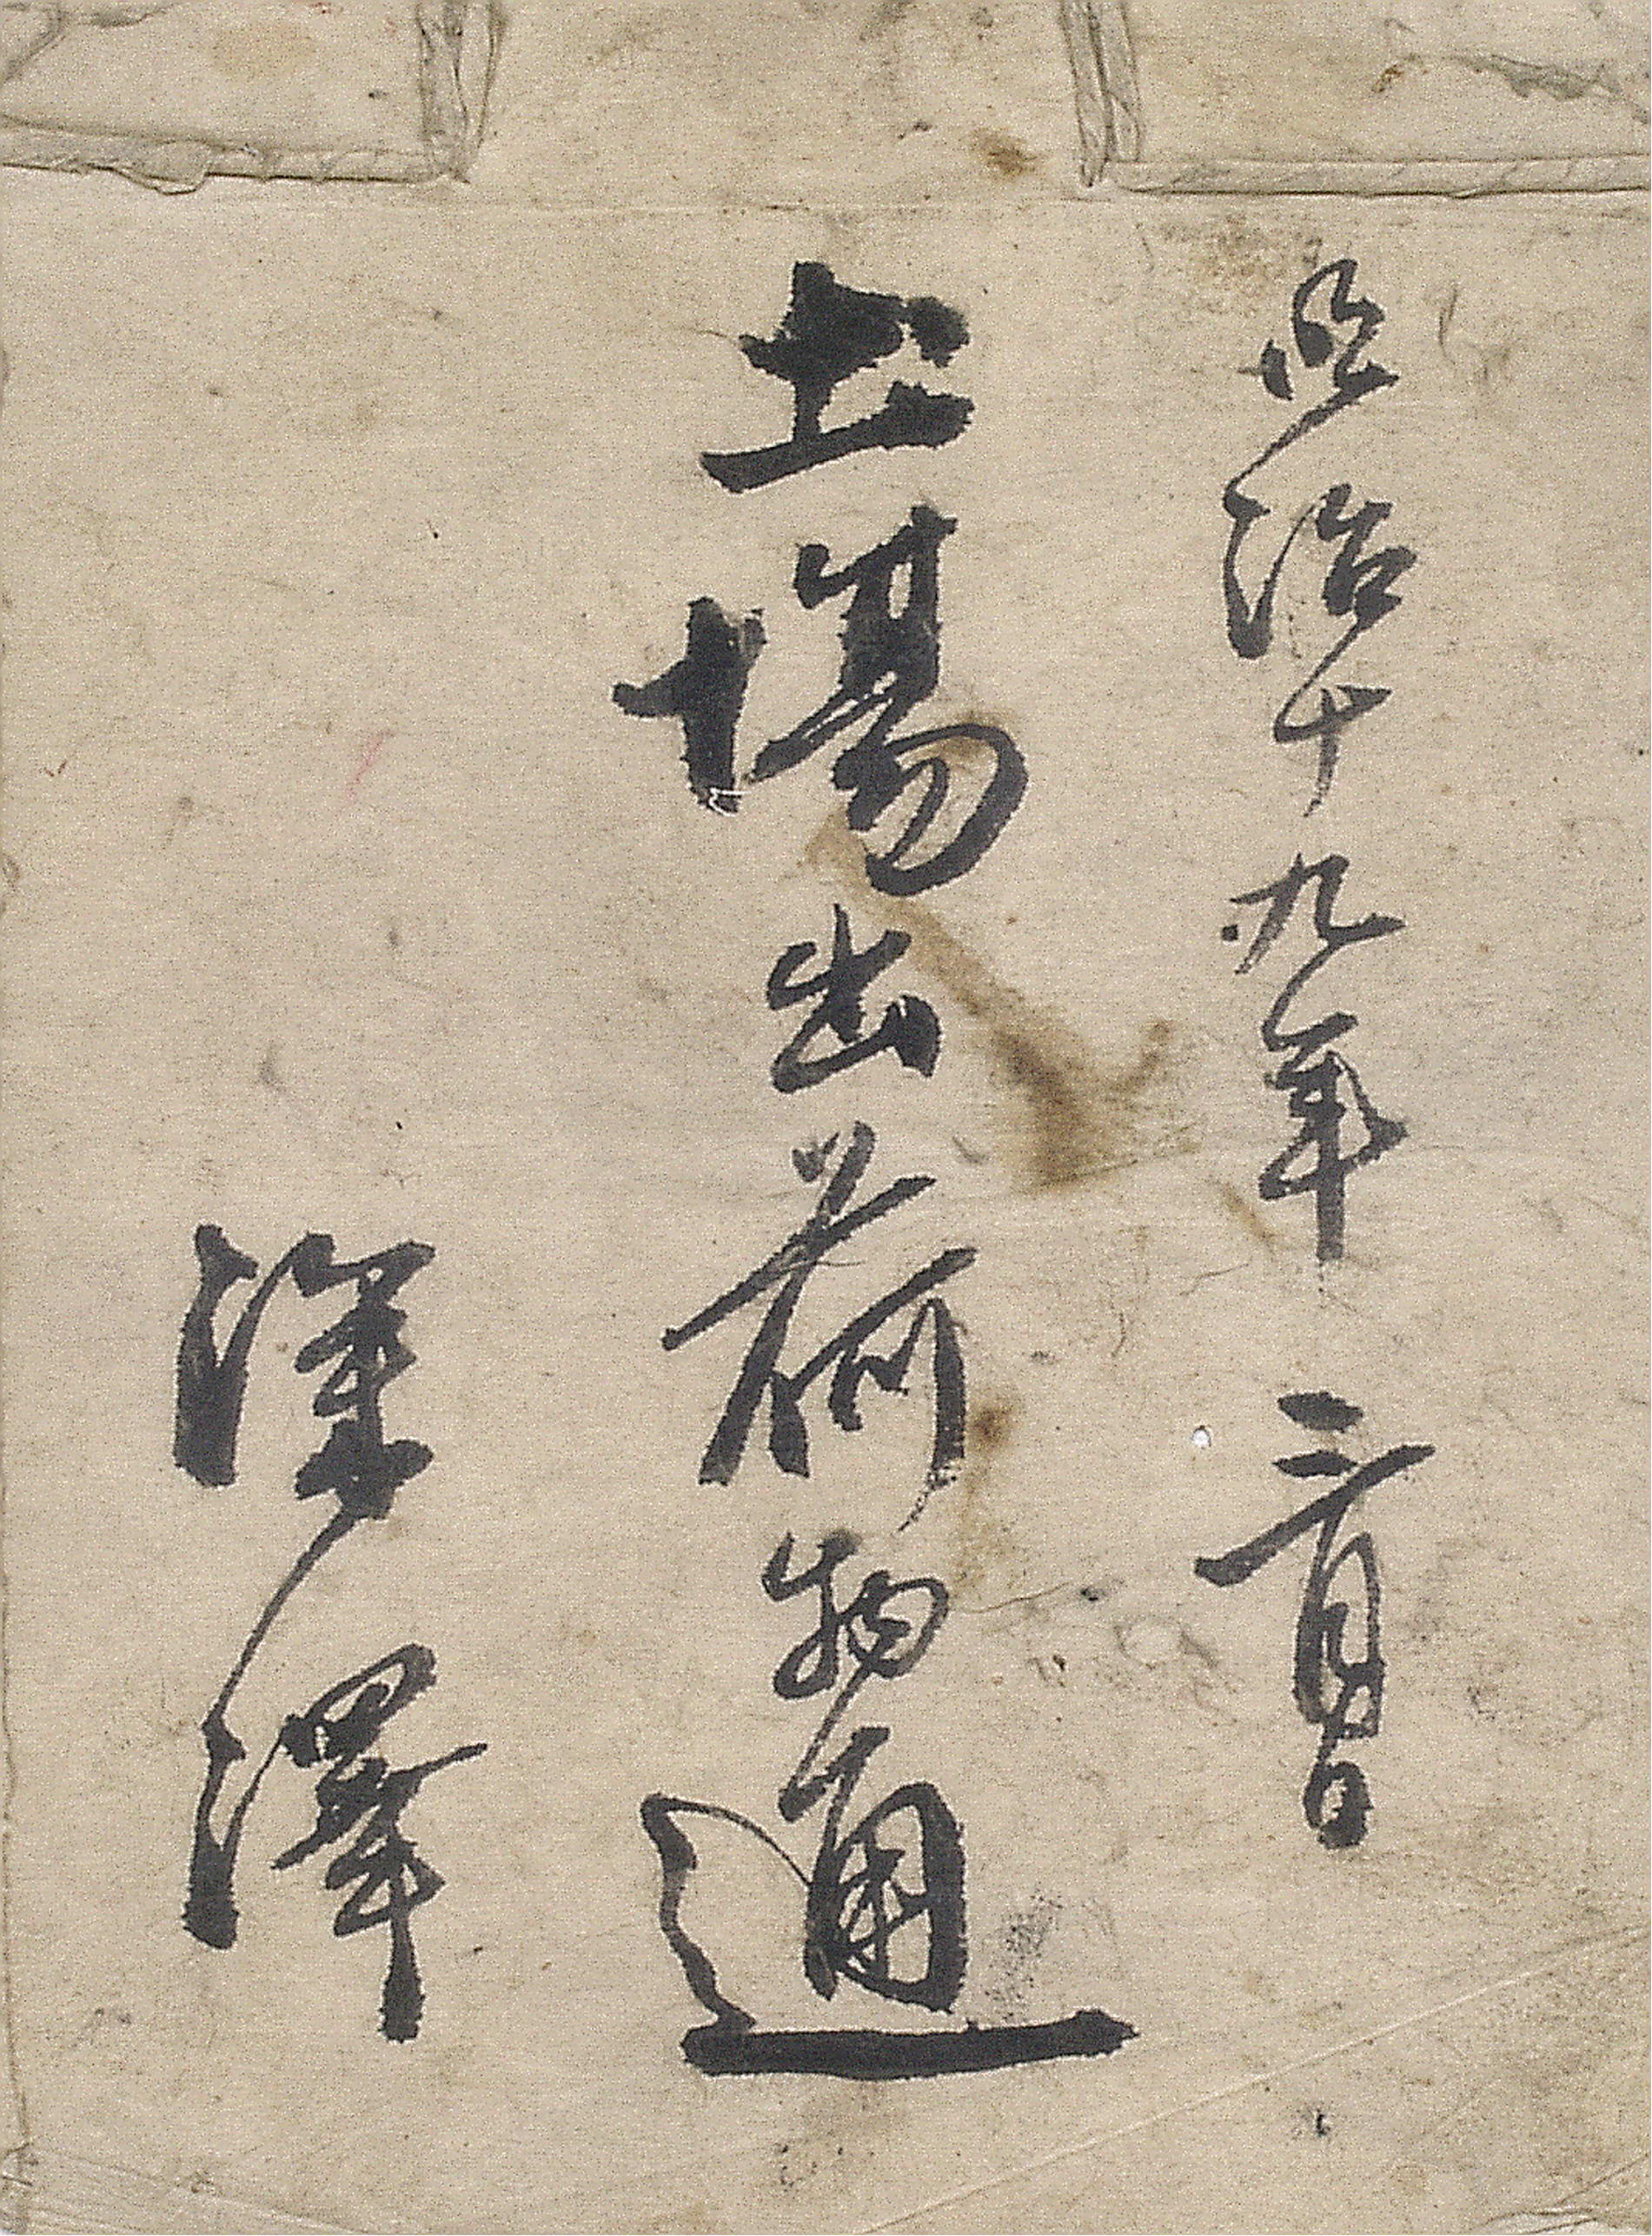 明治十九年 三月日
土場出荷物通
深澤